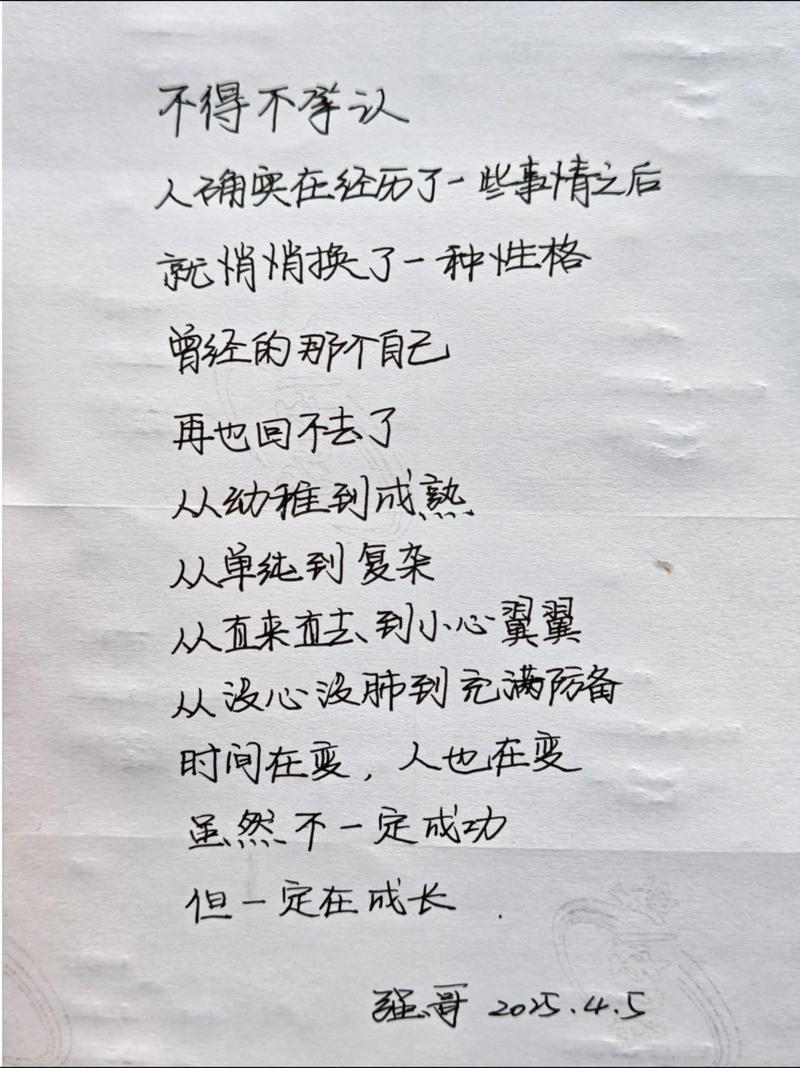 不得不承认
人确实在经历了一些事情之后
就悄悄换了一种性格
曾经的那个自己
再也回不去了
从幼稚到成熟
从单纯到复杂
从直来直去到小心翼翼
从没心没肺到充满防备
时间在变，人也在变
虽然不一定成功
但一定在成长.
强哥 2025.4.5